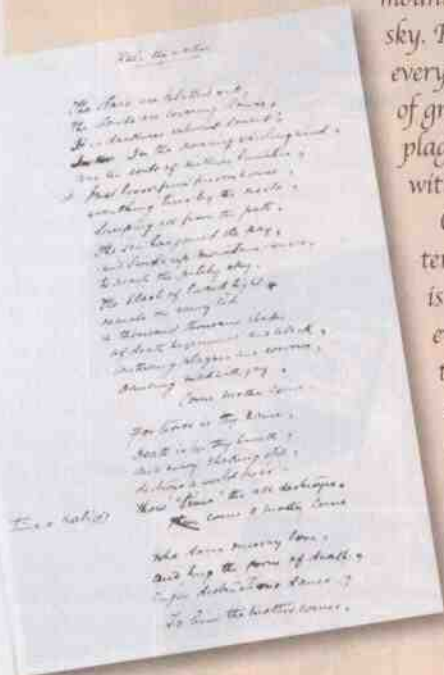 Kali the Mother
The stars are blotted out,
The clouds are covering clouds,
It is darkness vibrant sonant;
In the roaring whirling wind,
are the souls of million lunatics,
Just loose from prison house,
wrenching trees by the roots,
Sweeping all from the path.
The sea has joined the fray,
and swirls up mountain waves,
to reach the pitchy sky.
The flash of lurid light
reveals on every side
a thousand thousand shades
of death begrimed and black,
scattering plagues and sorrows,
Dancing mad with joy,
Come mother Come
For terror is thy name,
Death is in thy breath,
and every shaking step
destroys a world
Thou "Time" the all destroyer,
come O mother come
Who dares misery love,
and hug the form of death,
destructions dance
To him the mother comes.
mount
sky.
every
of gr
plac
with
ter
is
e
t